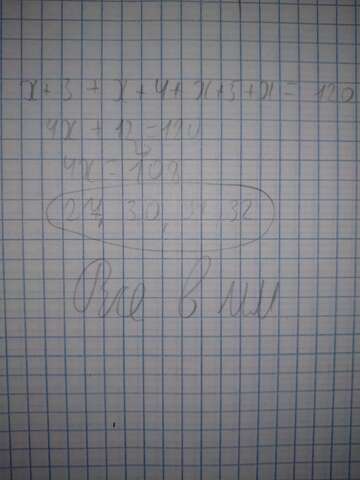 x + 3 + x + 4 + x + 5 + x = 120
4x + 12 = 120
4x = 108
27, 30, 31, 32
Все в мм